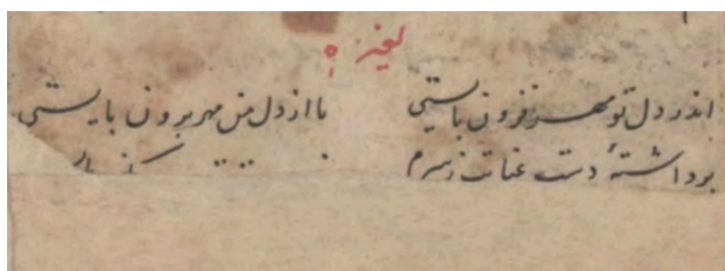 لغیره
اندر دل تو مهر فزون بایستی یا از دل من مهر برون بایستی
برداشتهٔ دست عنایت ز سرم